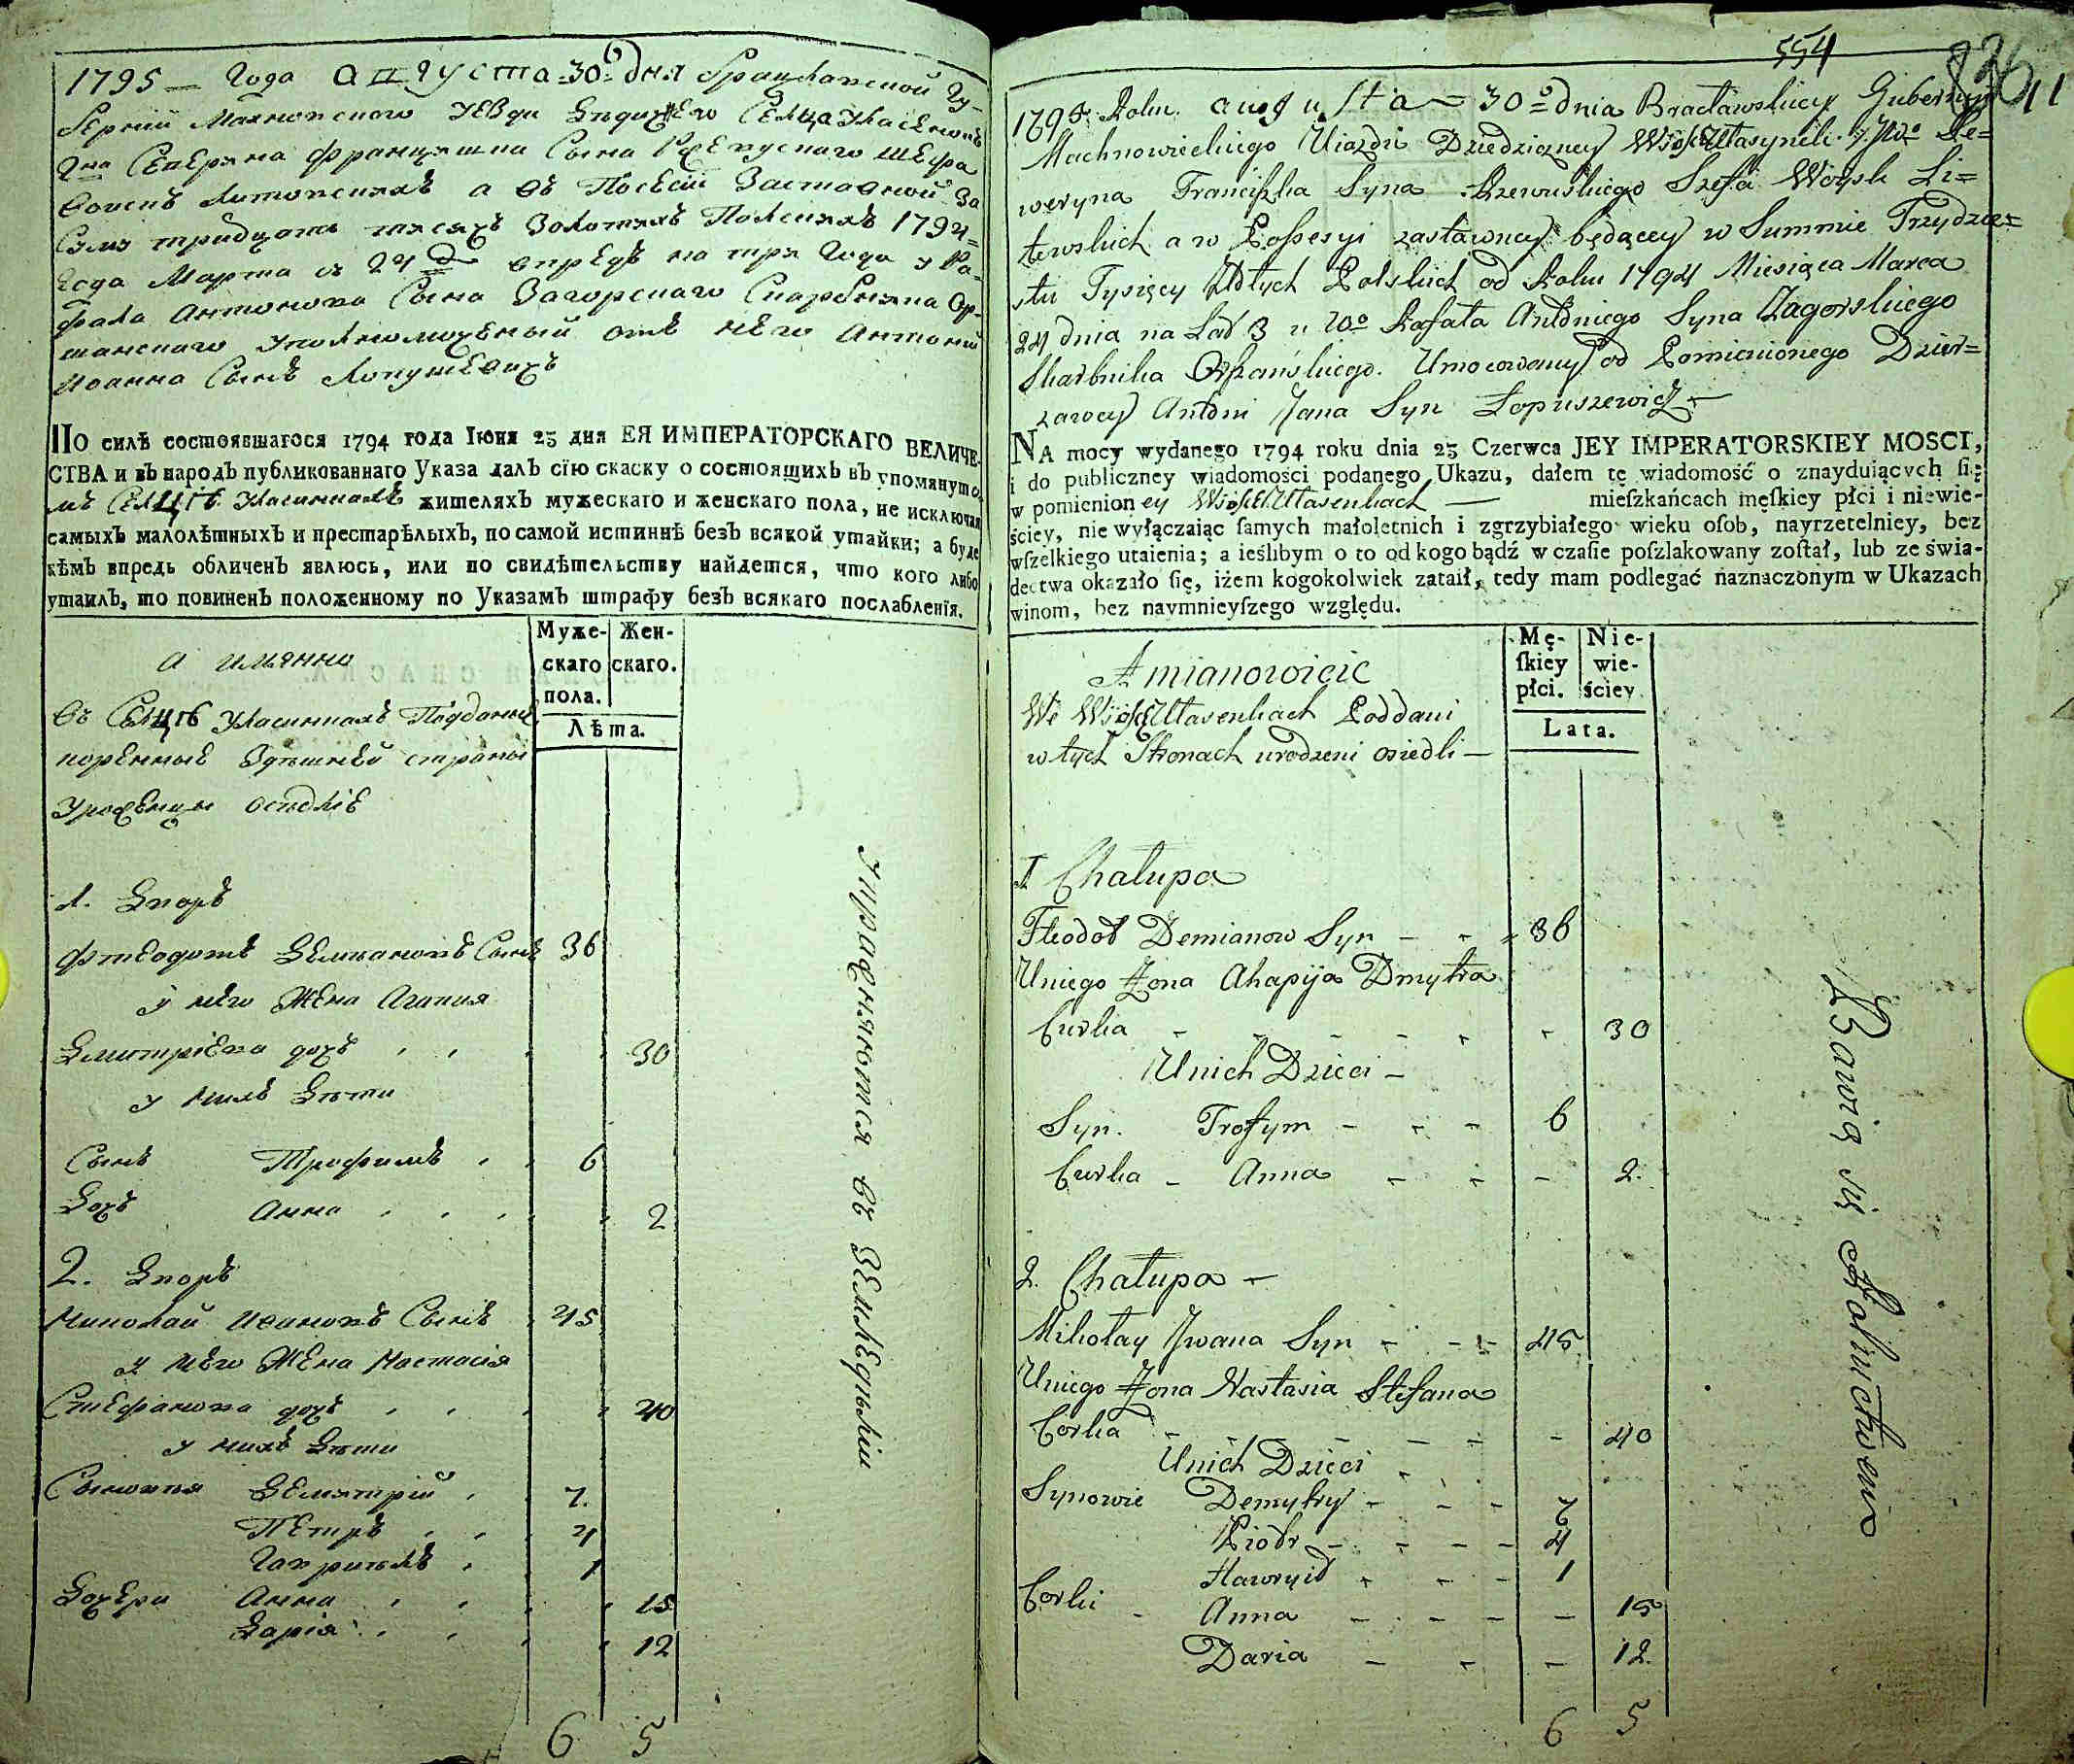 1795 — Года августа 30го дня Брацлавской Гу-
бернии Махновского уезда
Северина Францишка Сына Ржевуского Шефа
Войскъ Литовскихъ а въ Посесіи Заставной За
Суму тридцать тысячъ Золотыхъ Полскихъ 1794=
Года Марта съ 24 впредь на три Года у Ра-
фала Антонова Сына Загорского Скарбника Ор-
шанского уполномоченый отъ него Антоній
Иоанна Сынъ Лопушевичъ
ПО силѣ состоявшагося 1794 года Іюня 23 дня ЕЯ ИМПЕРАТОРСКАГО ВЕЛИЧЕ-
СТВА и въ народъ публикованнаго Указа далъ сїю скаску о состоящихъ въ упомянуто
мъ Селцѣ Уласинкахъ жителяхъ мужескаго и женскаго пола, не исключая
самыхъ малолѣтныхъ и престарѣлыхъ, по самой истиннѣ безъ всякой утайки; а буде
кѣмъ впредь обличенъ явлюсь, или по свидѣтельству найдется, что кого либо
утаилъ, то повиненъ положенному по Указамъ штрафу безъ всякаго послабленїя.
Муже-
скаго
пола.
Жен-
скаго.
Лѣта.
а имянно
въ Селцѣ Уласинкахъ Подданые
коренные Здешней страны
Уроженцы оседліе
1. Дворъ
Фтеодотъ Демяновъ Сынъ 36
у него Жена Агапия
Дмитріева дочь 30
у нихъ Дети
Сынъ Трофимъ 6
Дочь Анна 2
2. Дворъ
Николай Ивановъ Сынъ 45
у него Жена Настасія
Стефанова дочь 40
у нихъ Дети
Сыновья Демятрій 7.
Петръ 4
Гавриилъ 1
Дочери Анна 15
Дарія 12
6 5
упражняются въ Земледелыи
554
826
11
1795 Roku augusta 30º dnia Bracławskiey Gubernii
Machnowieckiego Uiazdu Dziedziczney JWº Se=
weryna Franciszka Syna Rzewuskiego Szefa Woysk Li=
tewskich a w Possesyi zastawney będącey w Summie Trzydzie=
stu Tysięcy Złotych Polskich od Roku 1794 Miesiąca Marca
24 dnia na Lat 3 u Wº Rafała Antoniego Syna Zagorskiego
Skarbnika Orszańskiego. Umocowany od Pomienionego Dzier=
zawcy Antoni Jana Syn Łopuszewicz —
NA mocy wydanego 1794 roku dnia 23 Czerwca JEY IMPERATORSKIEY MOSCI,
i do publiczney wiadomości podanego Ukazu, dałem tę wiadomość o znayduiących ſię
w pomienioney Wiosce Ułasenkach — mieſzkańcach męſkiey płci i niewie-
ściey, nie wyłączaiąc ſamych małoletnich i zgrzybiałego wieku oſob, nayrzetelniey, bez
wſzelkiego utaienia; a ieślibym o to od kogo bądź w czaſie poſzlakowany zoſtał, lub ze świa-
dectwa okazało ſię, iżem kogokolwiek zataił, tedy mam podlegać naznaczonym w Ukazach
winom, bez naymnieyſzego względu.
Mę-
ſkiey
płci.
Nie-
wie-
ściey.
Lata.
A mianowicie
We Wiosce Ułasenkach Poddani
w tych Stronach urodzeni osiedli —
1 Chałupa
Fteodot Demianow Syn 36
Uniego Żona Ahapija Dmytra
Curka 30
Unich Dzieci —
Syn. Trofym 6
Curka — Anna 2.
2. Chałupa —
Mikołay Jwana Syn 45
Uniego Żona Nastasia Stefana
Corka 40
Unich Dzieci
Synowie Demytry 7
Piotr 4
Hawryił 1
Corki — Anna 15
Daria 12.
6 5
Bawią się Rolnictwem